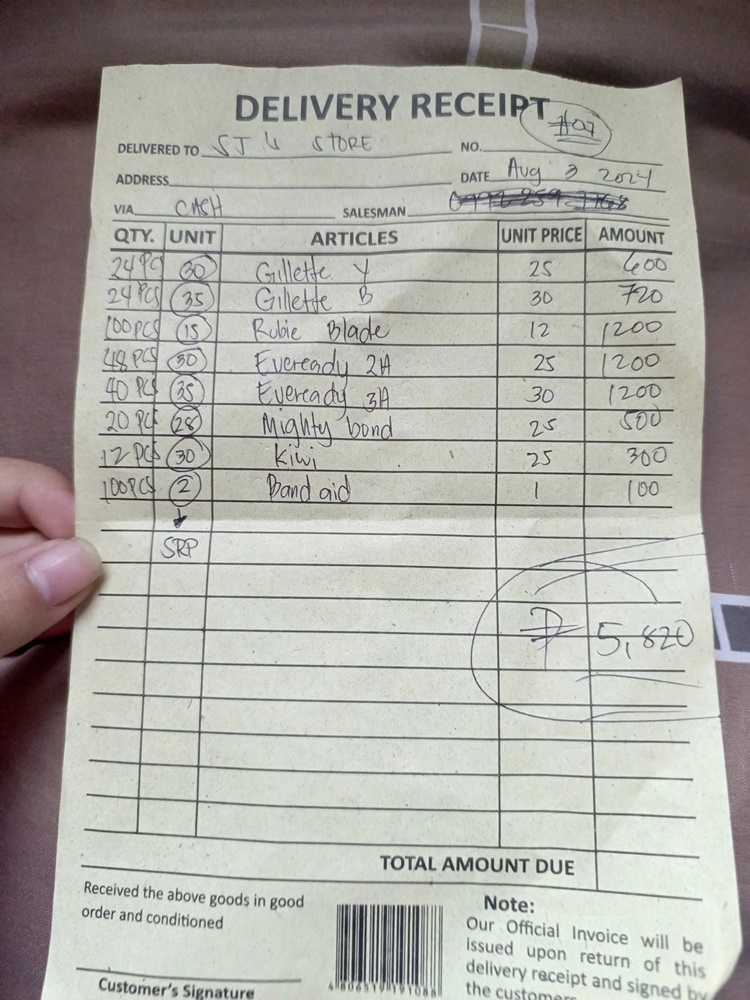 DELIVERY RECEIPT
#09
DELIVERED TO STORE NO.
ADDRESS DATE Aug 3 2024
VIA CASH SALESMAN
QTY. UNIT ARTICLES UNIT PRICE AMOUNT
24 PCS 30 Gillette Y 25 600
24 PCS 35 Gillette B 30 720
100 PCS 15 Rubie Blade 12 1200
48 PCS 30 Eveready 2A 25 1200
40 PCS 35 Eveready 3A 30 1200
20 PCS 28 Mighty bond 25 500
12 PCS 30 Kiwi 25 300
100 PCS 2 Band aid 1 100
SRP
₱ 5,820
TOTAL AMOUNT DUE
Received the above goods in good
order and conditioned
Customer's Signature
Note:
Our Official Invoice will be
issued upon return of this
delivery receipt and signed by
the customers